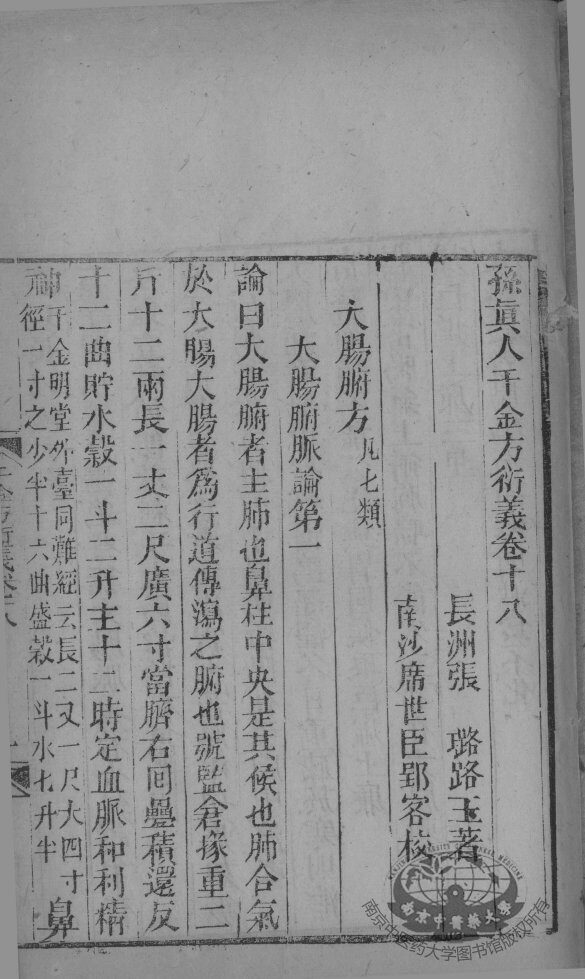 孫眞人千金方衍義卷十八
長洲張　璐路玉著
南沙席世臣郢客校
大腸腑方凡七類
大腸腑脈論第一
論曰大腸腑者主肺也鼻柱中央是其候也肺合氣
於大腸大腸者爲行道傳瀉之腑也號監倉掾重二
斤十二兩長一丈二尺廣六寸當臍右囘疊積還反
十二曲貯水穀一斗二升主十二時定血脈和利精
神千金明堂外臺同難經云長二丈一尺大四寸
徑一寸之少半十六曲盛穀一斗水七升半鼻
千金方衍義卷十八
一
南京中醫藥大學
南京中医药大学图书馆版权所有